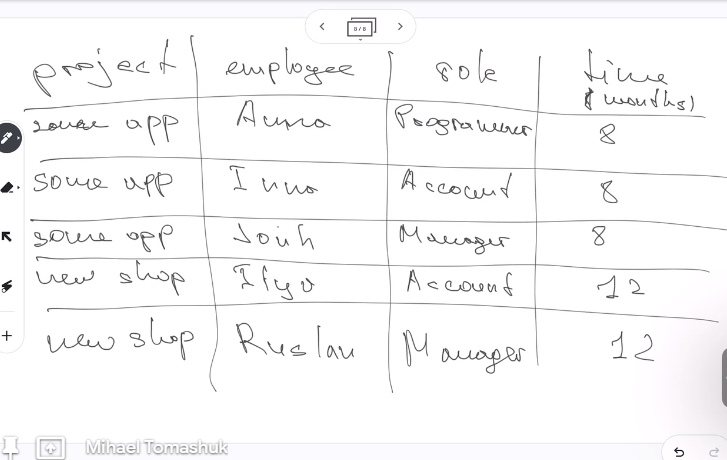 8/8
project employee role time
(months)
some app Anna Programmer 8
some app Inna Account 8
some app Manager 8
new shop Account 12
new shop Ruslan Manager 12
Mihael Tomashuk